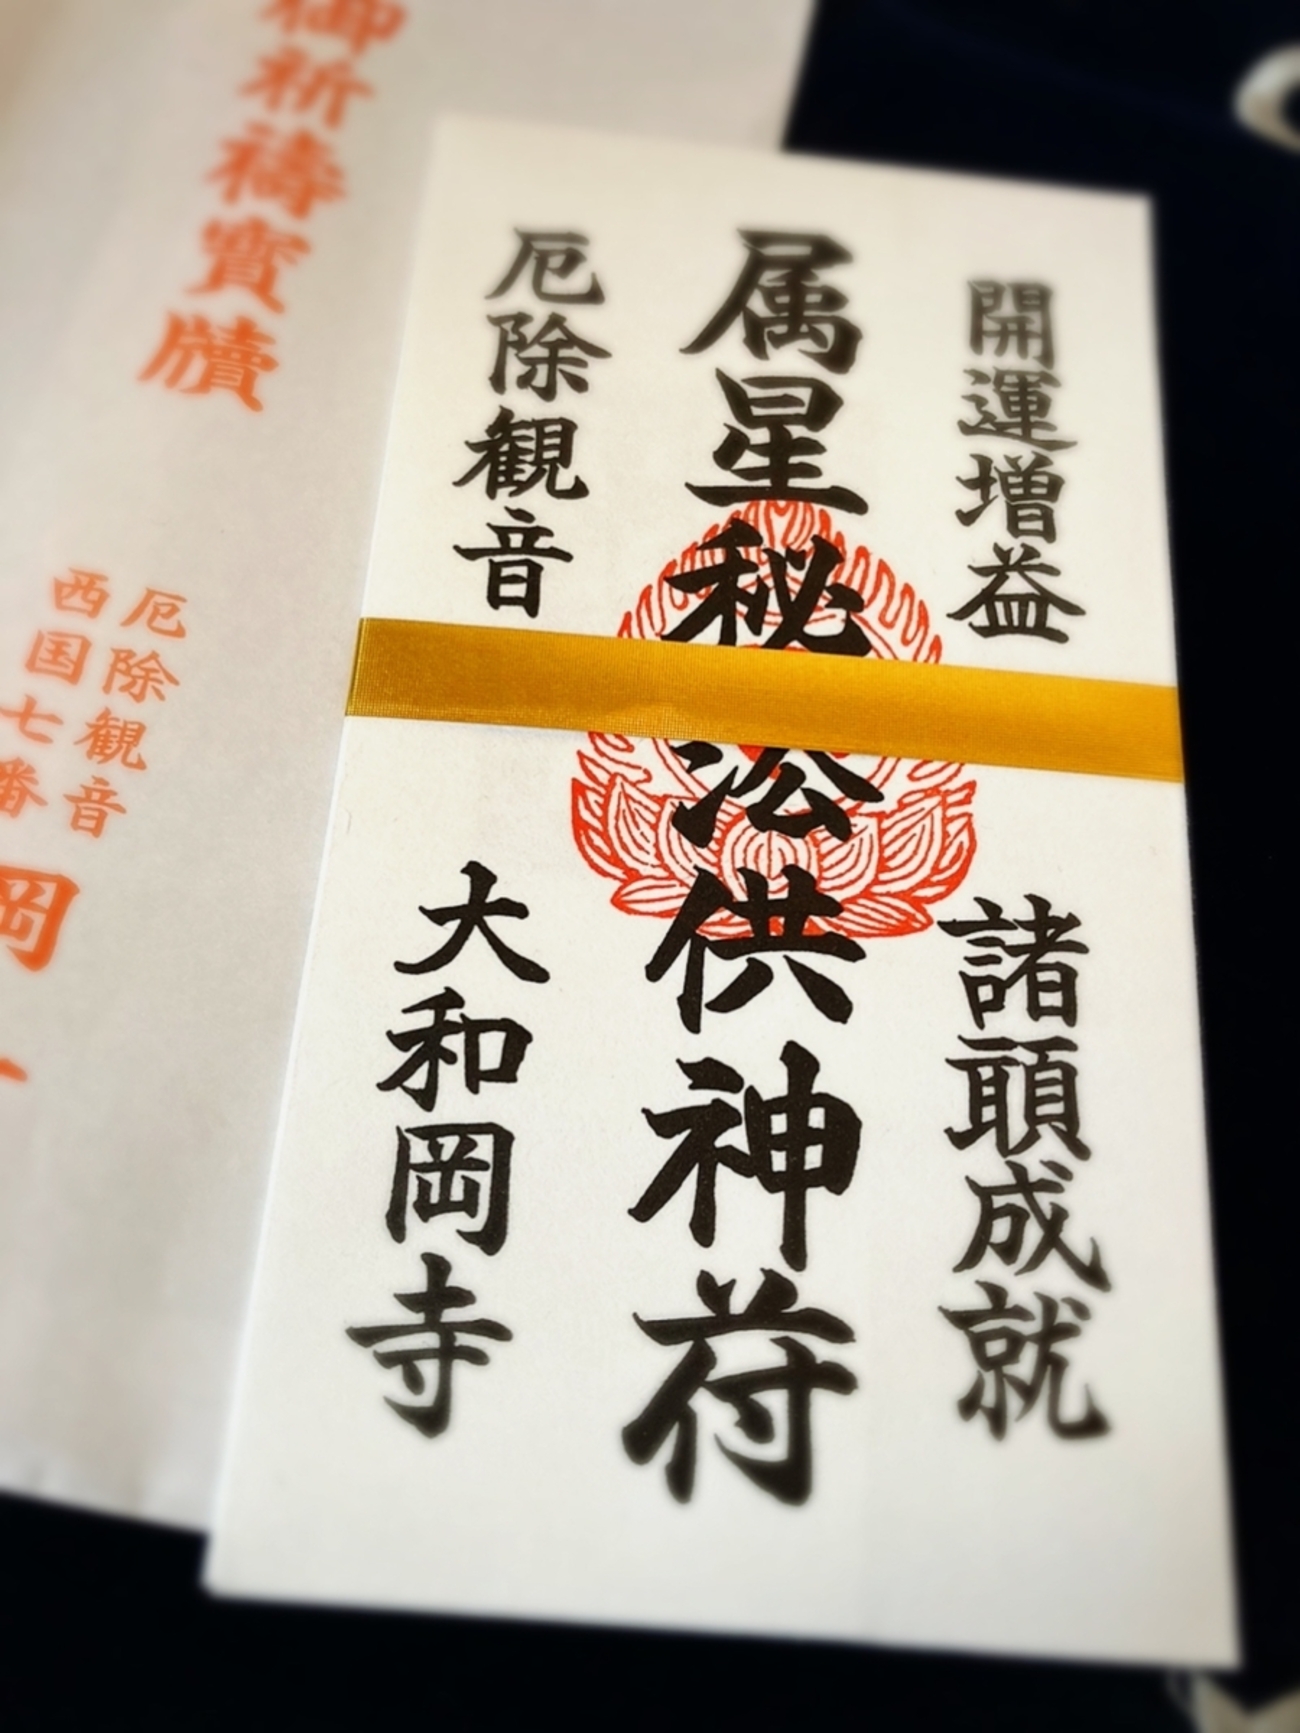 開運増益 諸願成就
属星秘法供神符
厄除観音 大和岡寺
御祈禱寳牘
厄除観音
西国七番
岡